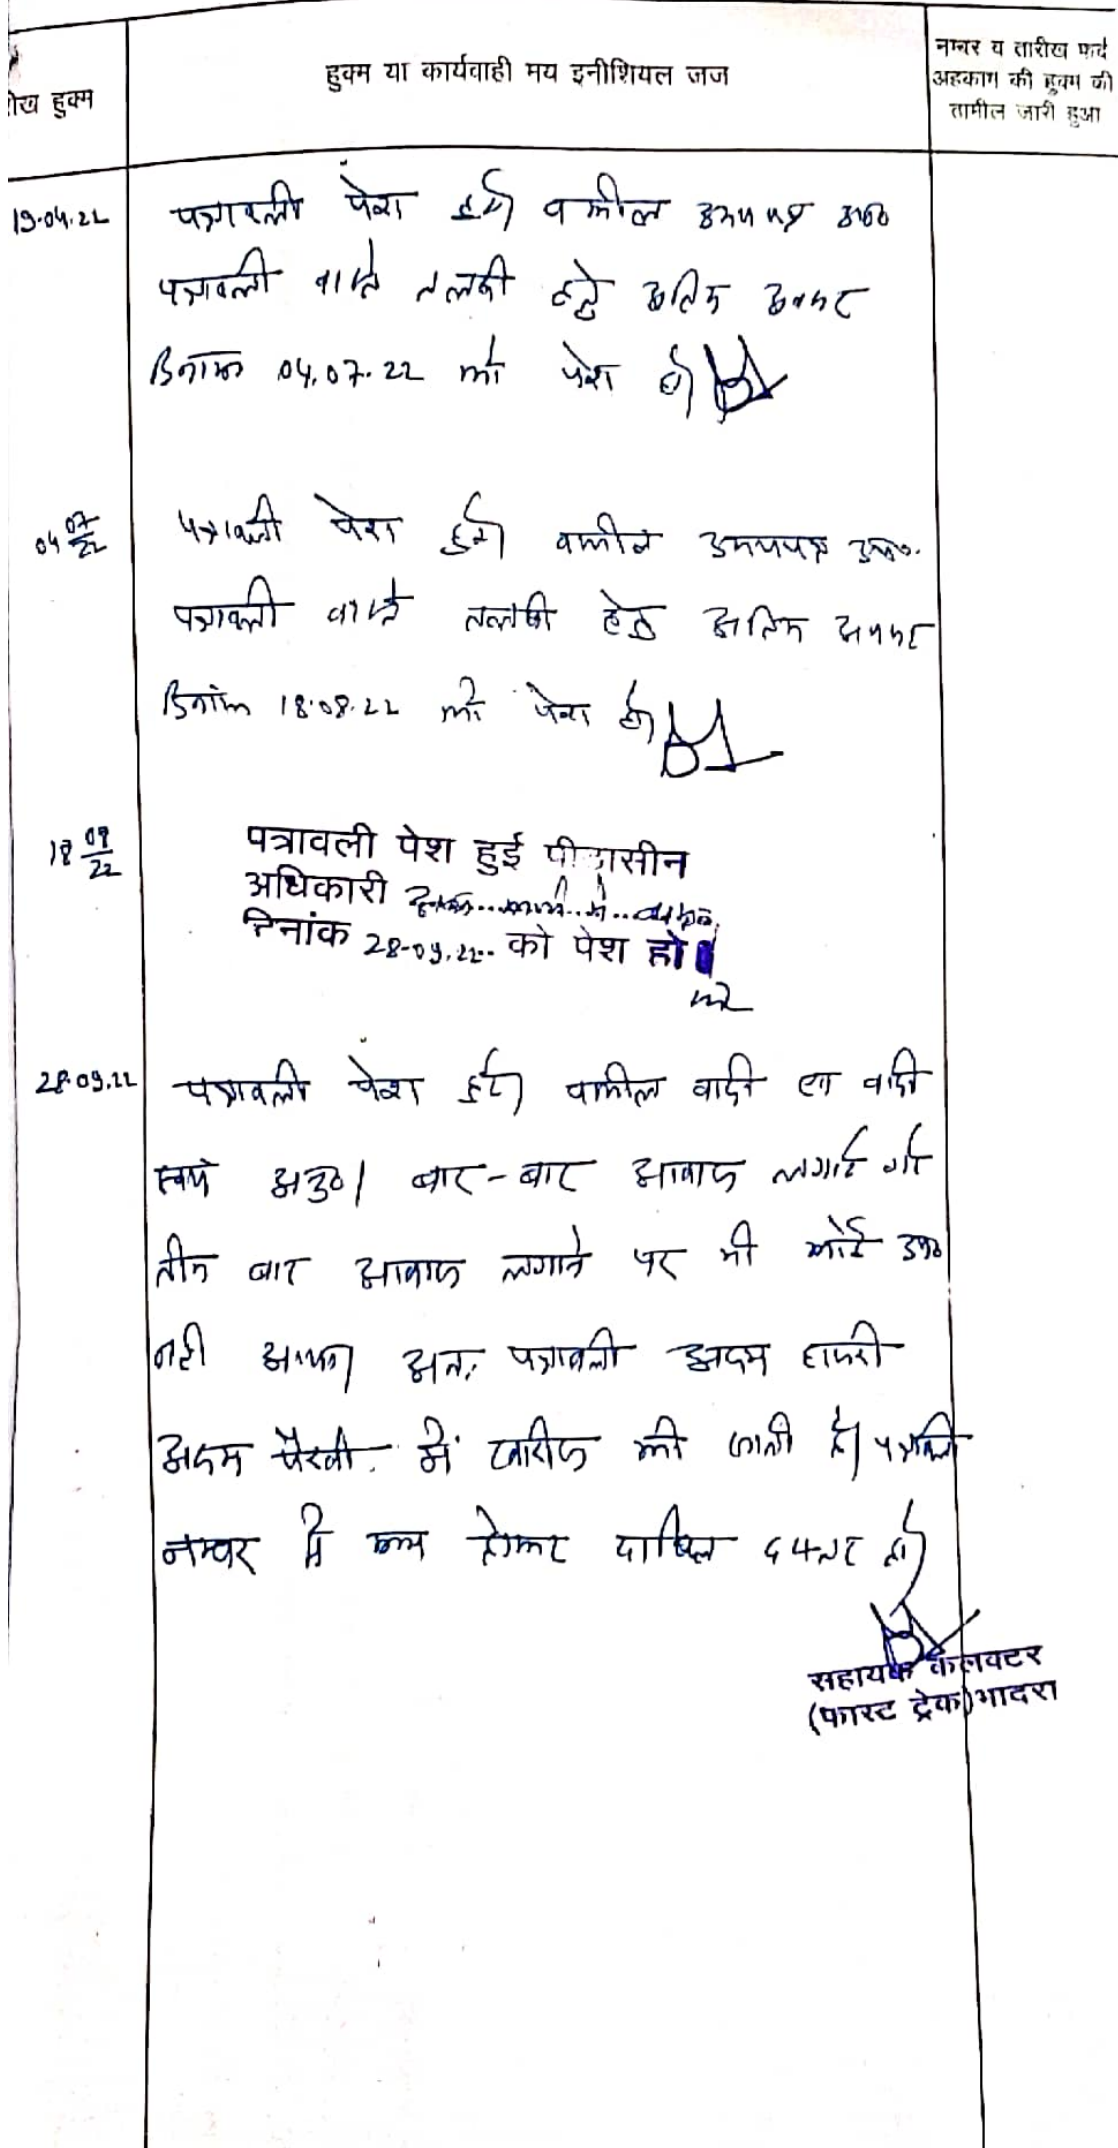 हुक्म या कार्यवाही मय इनीशियल जज
नम्बर व तारीख फर्द
अहकाम की हुक्म की
तामील जारी हुआ
ीख हुक्म
19.04.22
पत्रावली पेश हुई। वकील उभयपक्ष उप०
पत्रावली वास्ते तलबी हेतु अंतिम अवसर
दिनांक 04.07.22 को पेश हो।
04 07/22
पत्रावली पेश हुई। वकील उभयपक्ष उप०.
पत्रावली वास्ते तलबी हेतु अंतिम अवसर
दिनांक 18.08.22 को पेश हो।
18 08/22
पत्रावली पेश हुई पीठासीन
अधिकारी
दिनांक 28-09.22.. को पेश हो।
28.09.22
पत्रावली पेश हुई। वकील वादी एवं वादी
स्वयं अनु०। बार-बार आवाज लगाई गई
तीन बार आवाज लगाने पर भी कोई उप०
नही आया। अतः पत्रावली अदम हाजरी
अदम पैरवी में खारीज की जाती है। पत्रावली
नम्बर से कम होकर दाखिल दफ्तर हो।
सहायक कलक्टर
(फास्ट ट्रेक) भादरा